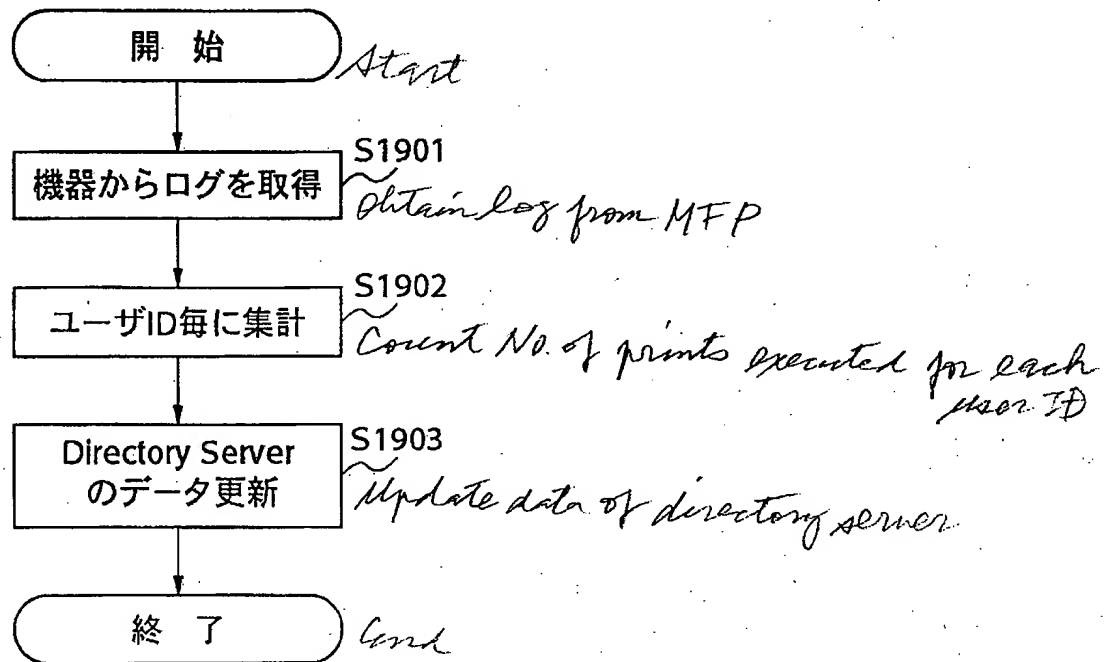 開 始
Start
S1901
機器からログを取得
Obtain log from MFP
S1902
ユーザID毎に集計
Count No. of prints executed for each
user ID
S1903
Directory Server
のデータ更新
Update data of directory server
終 了
End